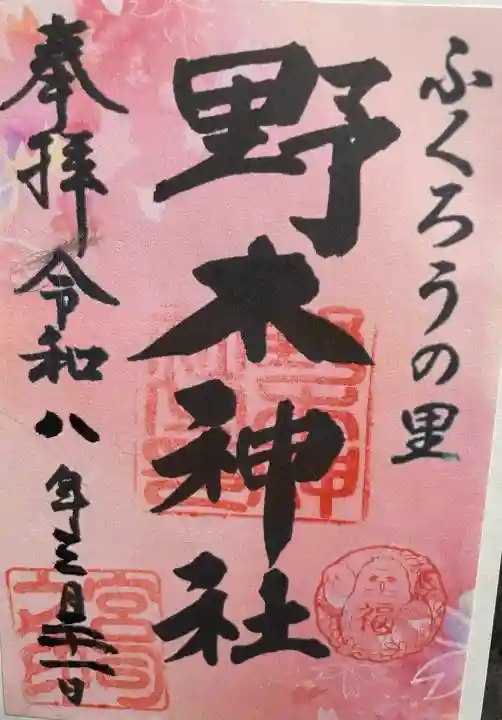 ふくろうの里
野木神社
奉拝 令和八年三月廿一日
福